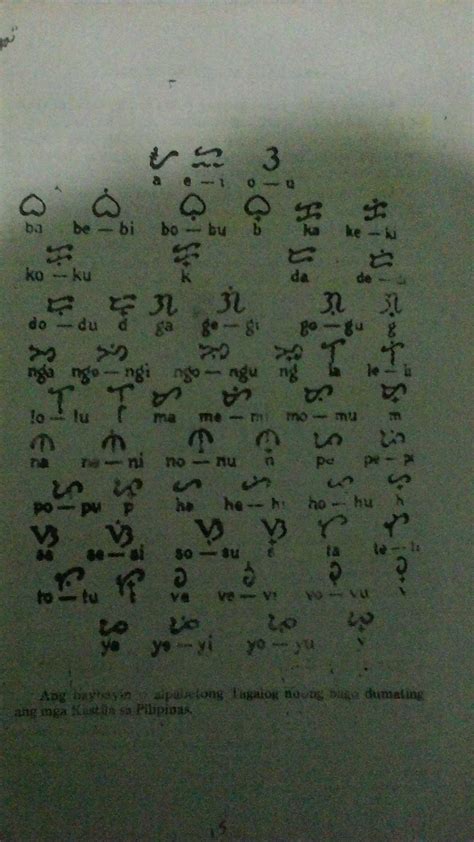 ᜀ ᜁ ᜂ
a e — i o — u
ᜊ ᜊᜒ ᜊᜓ ᜊ᜔ ᜃ ᜃᜒ
ba be — bi bo — bu b ka ke — ki
ᜃᜓ ᜃ᜔ ᜇ ᜇᜒ
ko — ku k da de —
ᜇᜓ ᜇ᜔ ᜄ ᜄᜒ ᜄᜓ ᜄ᜔
do — du d ga ge — gi go — gu g
ᜅ ᜅᜒ ᜅᜓ ᜅ᜔ ᜎ ᜎᜒ
nga nge — ngi ngo — ngu ng la le — li
ᜎᜓ ᜎ᜔ ᜋ ᜋᜒ ᜋᜓ ᜋ᜔
lo — lu l ma me — mi mo — mu m
ᜈ ᜈᜒ ᜈᜓ ᜈ᜔ ᜉ ᜉᜒ
na ne — ni no — nu n pa pe — pi
ᜉᜓ ᜉ᜔ ᜑ ᜑᜒ ᜑᜓ ᜑ᜔
po — pu p ha he — hi ho — hu h
ᜐ ᜐᜒ ᜐᜓ ᜐ᜔ ᜆ ᜆᜒ
sa se — si so — su s ta te — ti
ᜆᜓ ᜆ᜔ ᜏ ᜏᜒ ᜏᜓ ᜏ᜔
to — tu t va ve — vi vo — vu v
ᜌ ᜌᜒ ᜌᜓ ᜌ᜔
ya ye — yi yo — yu y
Ang baybayin o alpabetong Tagalog noong bago dumating
ang mga Kastila sa Pilipinas.